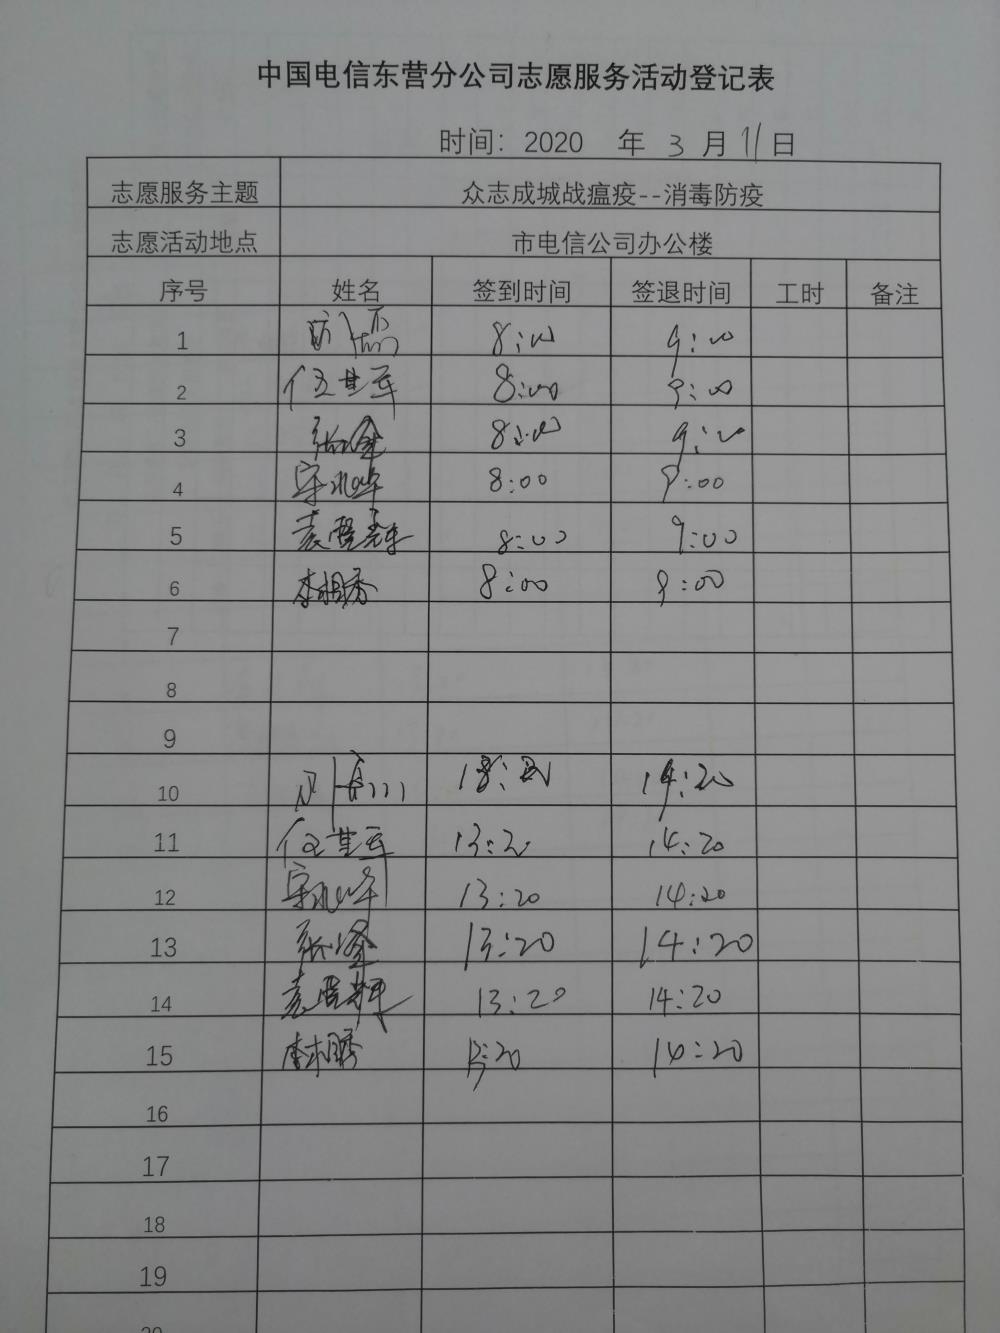 中国电信东营分公司志愿服务活动登记表
时间：2020 年 3 月 11 日
志愿服务主题 众志成城战瘟疫--消毒防疫
志愿活动地点 市电信公司办公楼
序号 姓名 签到时间 签退时间 工时 备注
1 8:00 9:00
2 任世军 8:00 9:00
3 8:00 9:00
4 8:00 9:00
5 8:00 9:00
6 8:00 9:00
7
8
9
10 14:20
11 任世军 13:20 14:20
12 13:20 14:20
13 13:20 14:20
14 13:20 14:20
15 13:20 14:20
16
17
18
19
20